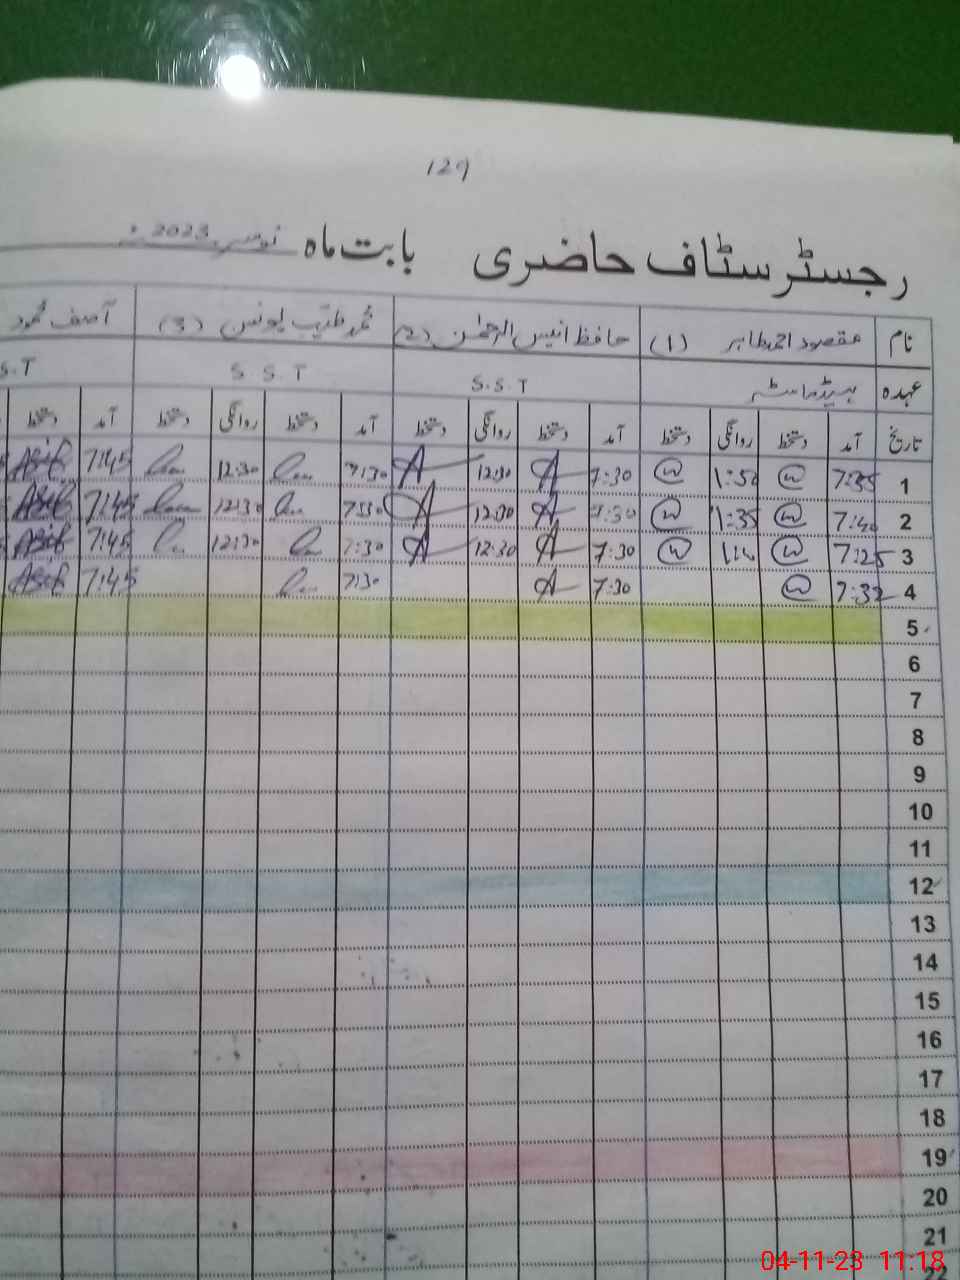 129
رجسٹر سٹاف حاضری بابت ماہ نومبر 2023ء
نام مقصود احمد طاہر (1) حافظ انیس الرحمٰن (2) محمد طیب یونس (3) آصف محمود
عہدہ ہیڈ ماسٹر S.S.T S S T S.T
تاریخ آمد دستخط روانگی دستخط آمد دستخط روانگی دستخط آمد دستخط روانگی دستخط آمد دستخط
1 7:35 1:50 7:30 12:30 7:30 12:30 7:45 Asif
2 7:40 1:35 7:30 12:30 7:30 12:30 7:45 Asif
3 7:25 7:30 12:30 7:30 12:30 7:45 Asif
4 7:32 7:30 7:30 7:45 Asif
5
6
7
8
9
10
11
12
13
14
15
16
17
18
19
20
21
22
04-11-23 11:18